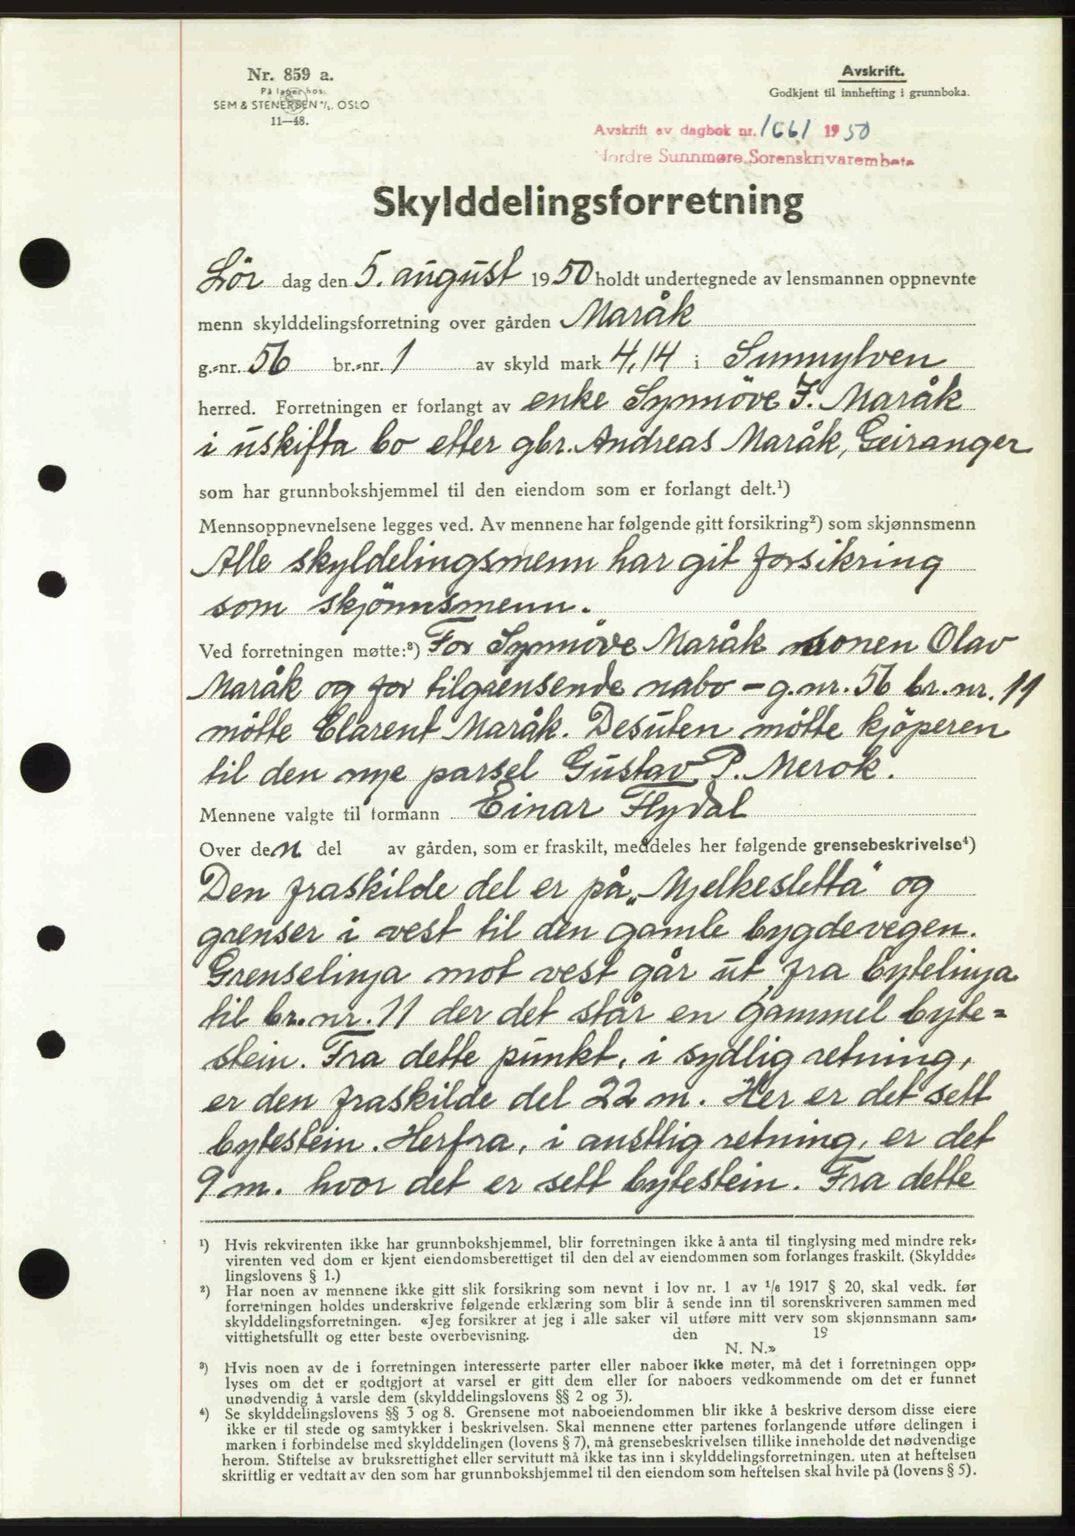 Nr. 859 a.
På lager hos:
SEM & STENERSEN A/S. OSLO
11—48.
Avskrift.
Godkjent til innhefting i grunnboka.
Avskrift av dagbok nr. 1661 1950
Nordre Sunnmøre Sorenskrivarembete
Skylddelingsforretning
Lör dag den 5. august 1950 holdt undertegnede av lensmannen oppnevnte
menn skylddelingsforretning over gården Maråk
g.-nr. 56 br.-nr. 1 av skyld mark 4,14 i Sunnylven
herred. Forretningen er forlangt av enke Synnöve J. Maråk
i uskifta bo etter gbr. Andreas Maråk, Geiranger
som har grunnbokshjemmel til den eiendom som er forlangt delt.¹)
Mennsoppnevnelsene legges ved. Av mennene har følgende gitt forsikring²) som skjønnsmenn
Alle skyldelingsmenn har git forsikring
som skjönnsmenn.
Ved forretningen møtte:³) For Synnöve Maråk sonen Olav
Maråk og for tilgrensende nabo - g.nr. 56 br.nr. 11
mötte Clarent Maråk. Desuten mötte kjöperen
til den nye parsel Gustav P. Merok.
Mennene valgte til formann Einar Flydal
Over den del av gården, som er fraskilt, meddeles her følgende grensebeskrivelse⁴)
Den fraskilde del er på „Mjelkesletta" og
grenser i vest til den gamle bygdevegen.
Grenselinja mot vest går ut fra bytelinja
til br.nr. 11 der det står en gammel byte=
stein. Fra dette punkt, i sydlig retning,
er den fraskilde del 22 m. Her er det sett
bytestein. Herfra, i austlig retning, er det
9 m. hvor det er sett bytestein. Fra dette
¹) Hvis rekvirenten ikke har grunnbokshjemmel, blir forretningen ikke å anta til tinglysing med mindre rek-
virenten ved dom er kjent eiendomsberettiget til den del av eiendommen som forlanges fraskilt. (Skyldde-
lingslovens § 1.)
²) Har noen av mennene ikke gitt slik forsikring som nevnt i lov nr. 1 av ¹/6 1917 § 20, skal vedk. før
forretningen holdes underskrive følgende erklæring som blir å sende inn til sorenskriveren sammen med
skylddelingsforretningen. «Jeg forsikrer at jeg i alle saker vil utføre mitt verv som skjønnsmann sam-
vittighetsfullt og etter beste overbevisning. den 19
N. N.»
³) Hvis noen av de i forretningen interesserte parter eller naboer ikke møter, må det i forretningen opp-
lyses om det er godtgjort at varsel er gitt dem eller for naboers vedkommende om det er funnet
unødvendig å varsle dem (skylddelingslovens §§ 2 og 3).
⁴) Se skylddelingslovens §§ 3 og 8. Grensene mot naboeiendommen blir ikke å beskrive dersom disse eiere
ikke er til stede og samtykker i beskrivelsen. Skal mennene etter partenes forlangende utføre delingen i
marken i forbindelse med skylddelingen (lovens § 7), må grensebeskrivelsen tillike inneholde det nødvendige
herom. Stiftelse av bruksrettighet eller servitutt må ikke tas inn i skylddelingsforretningen. uten at heftelsen
skriftlig er vedtatt av den som har grunnbokshjemmel til den eiendom som heftelsen skal hvile på (lovens § 5).